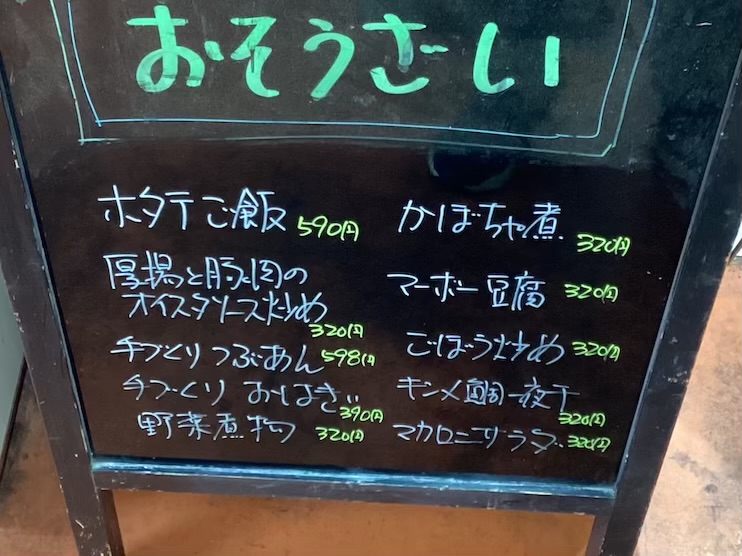 おそうざい
ホタテご飯 590円
厚揚と豚肉の
オイスタソース炒め
320円
手づくりつぶあん 598円
手づくり おはぎ
390円
野菜煮物 320円
かぼちゃ煮
320円
マーボー豆腐 320円
ごぼう炒め 320円
キンメ鯛一夜干
320円
マカロニサラダ 320円